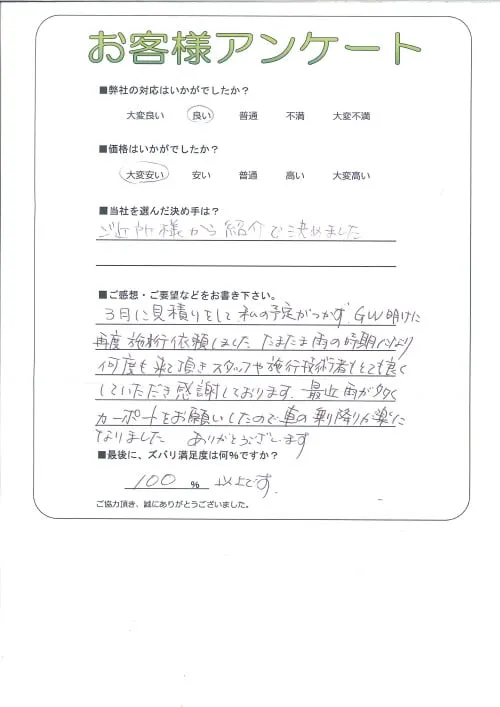 お客様アンケート
■弊社の対応はいかがでしたか?
大変良い 良い 普通 不満 大変不満
■価格はいかがでしたか?
大変安い 安い 普通 高い 大変高い
■当社を選んだ決め手は?
ご近所様から紹介で決めました
■ご感想・ご要望などをお書き下さい。
3月に見積りをして私の予定がつかず GW明けに
再度施行依頼しました たまたま雨の時期になり
何度も来て頂きスタッフや施行技術者もとても良く
していただき感謝しております。最近雨が多く
カーポートをお願いしたので車の乗り降りが楽に
なりました ありがとうございます
■最後に、ズバリ満足度は何%ですか?
100 % 以上です。
ご協力頂き、誠にありがとうございました。